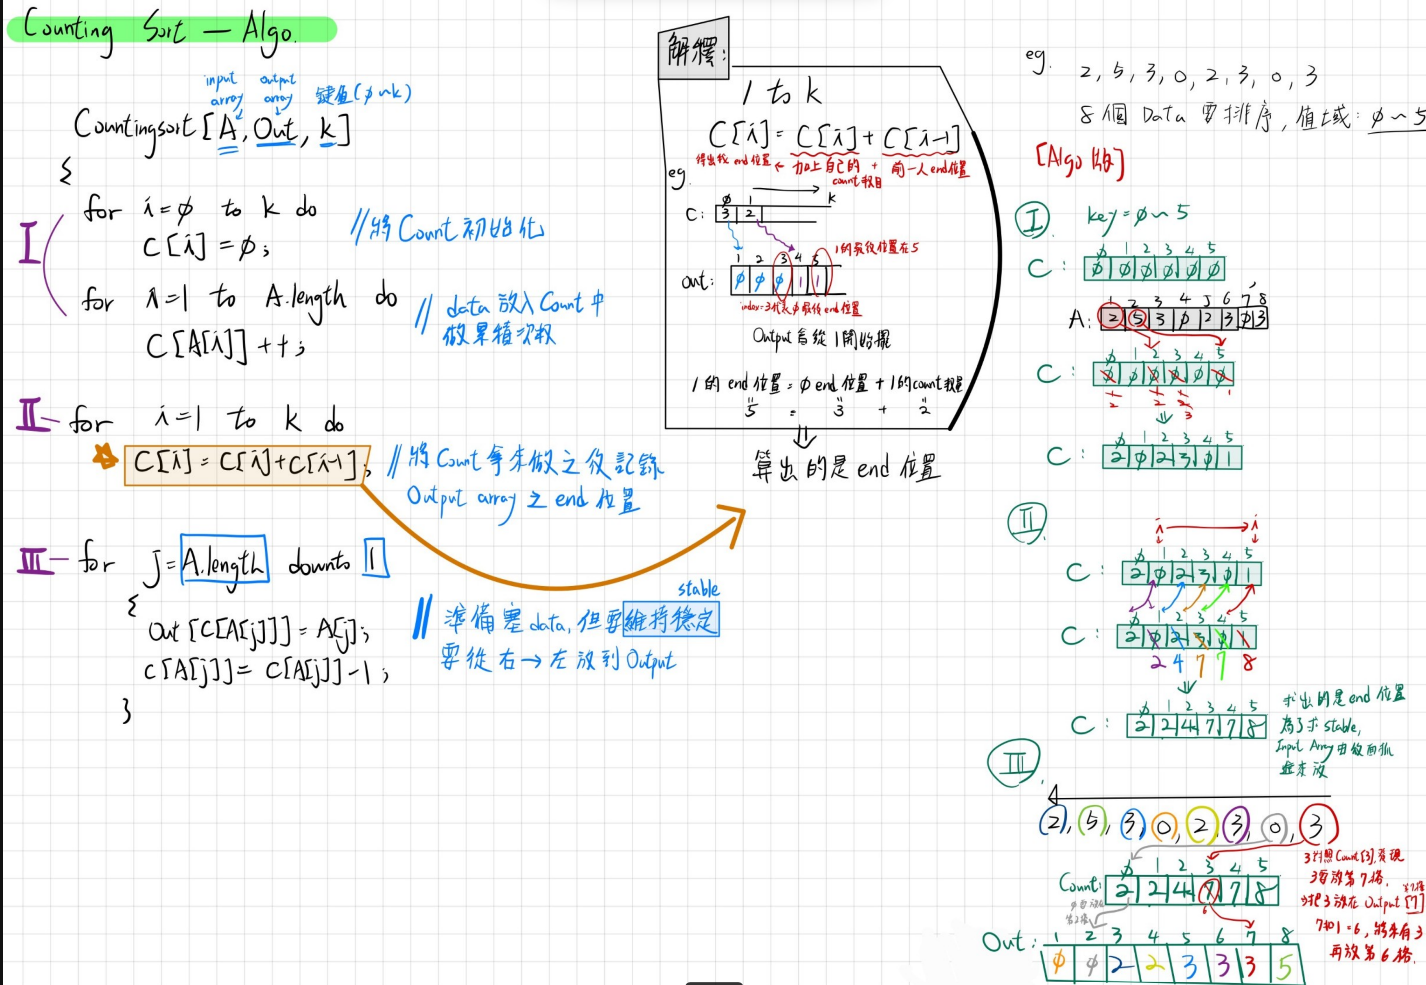 Counting Sort — Algo.
input array
output array
鍵值(φ~k)
Countingsort [A, Out, k]
{
I
for i=φ to k do
C[i] = φ;
//將 Count 初始化
for i=1 to A.length do
C[A[i]]++;
// data 放入 Count 中
做累積次數
II
for i=1 to k do
C[i] = C[i]+C[i-1];
//將 Count 拿來做之後記錄
Output array 之 end 位置
III
for J=A.length downto 1
{
Out[C[A[j]]] = A[j];
C[A[j]] = C[A[j]]-1;
}
stable
// 準備塞 data, 但要維持穩定
要從右→左放到 Output
解釋:
1 to k
C[i] = C[i] + C[i-1]
得出我 end 位置 ← 加上自己的 count 數目 + 前一人 end 位置
eg.
φ 1 k
C: 3 2
1 2 3 4 5
out: φ φ φ 1 1
1的最後位置在5
index=3代表φ最後end位置
Output 會從 1 開始擺
1 的 end 位置 = φ end 位置 + 1的count數量
5 = 3 + 2
⇓
算出的是 end 位置
eg. 2, 5, 3, 0, 2, 3, 0, 3
8 個 Data 要排序, 值域: φ~5
[Algo 版]
I key = φ~5
φ 1 2 3 4 5
C: φ φ φ φ φ φ
1 2 3 4 5 6 7 8
A: 2 5 3 φ 2 3 φ 3
φ 1 2 3 4 5
C: φ φ φ φ φ φ
1 1 1 1
2 2 2
3
⇓
φ 1 2 3 4 5
C: 2 φ 2 3 φ 1
II
i → i
φ 1 2 3 4 5
C: 2 φ 2 3 φ 1
φ 1 2 3 4 5
C: 2 φ 2 3 φ 1
2 4 7 7 8
⇓
φ 1 2 3 4 5
C: 2 2 4 7 7 8
求出的是 end 位置
為了求 stable,
Input Array 由後面抓
出來放
III
2, 5, 3, 0, 2, 3, 0, 3
φ 1 2 3 4 5
Count: 2 2 4 7 7 8
6
3對照 Count[3], 發現
3要放第7格.
→把 3 放在 Output [7]
7扣1=6, 將來有3
再放第6格.
1 2 3 4 5 6 7 8
Out: φ φ 2 2 3 3 3 5